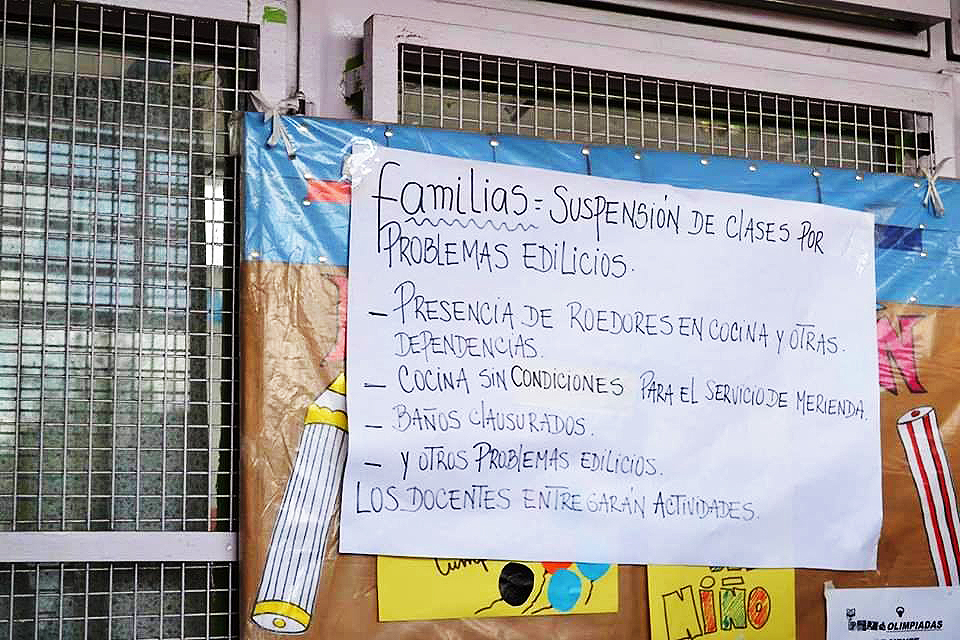 Familias = SUSPENSIÓN DE CLASES POR
PROBLEMAS EDILICIOS.
– PRESENCIA DE ROEDORES EN COCINA Y OTRAS
DEPENDENCIAS.
– COCINA SIN CONDICIONES PARA EL SERVICIO DE MERIENDA.
– BAÑOS CLAUSURADOS.
– Y OTROS PROBLEMAS EDILICIOS.
LOS DOCENTES ENTREGARÁN ACTIVIDADES.
NIÑO
OLIMPIADAS